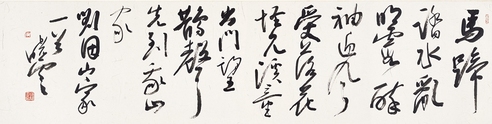 馬蹄
踏水亂
明霞醉
袖迎風
受落花
怪見溪童
出門望
鵲聲
先到我山
家
劉因山家
一首